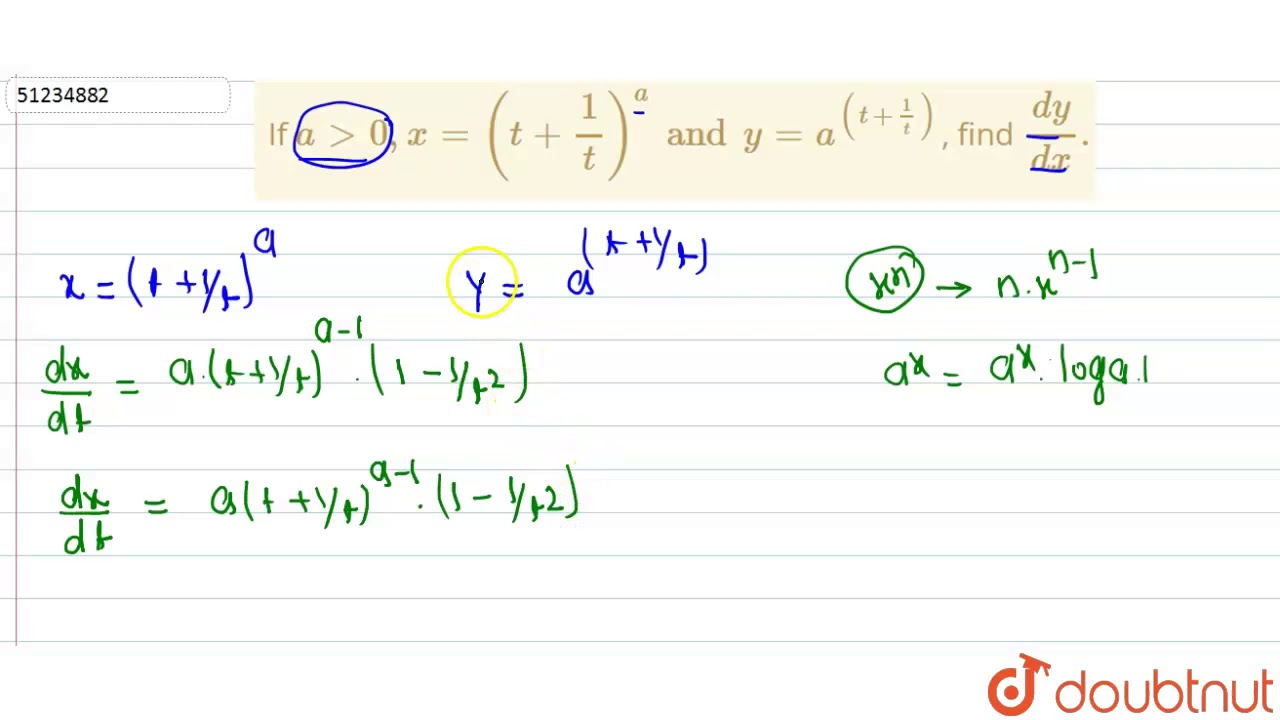 51234882
If a > 0, x = (t + 1/t)^a and y = a^(t + 1/t), find dy/dx.
x = (t + 1/t)^a
y = a^(t + 1/t)
xⁿ → n.x^n-1
dx/dt = a.(t + 1/t)^a-1 . (1 - 1/t2)
aˣ = aˣ. log a.1
dx/dt = a(t + 1/t)^a-1 . (1 - 1/t2)
doubtnut